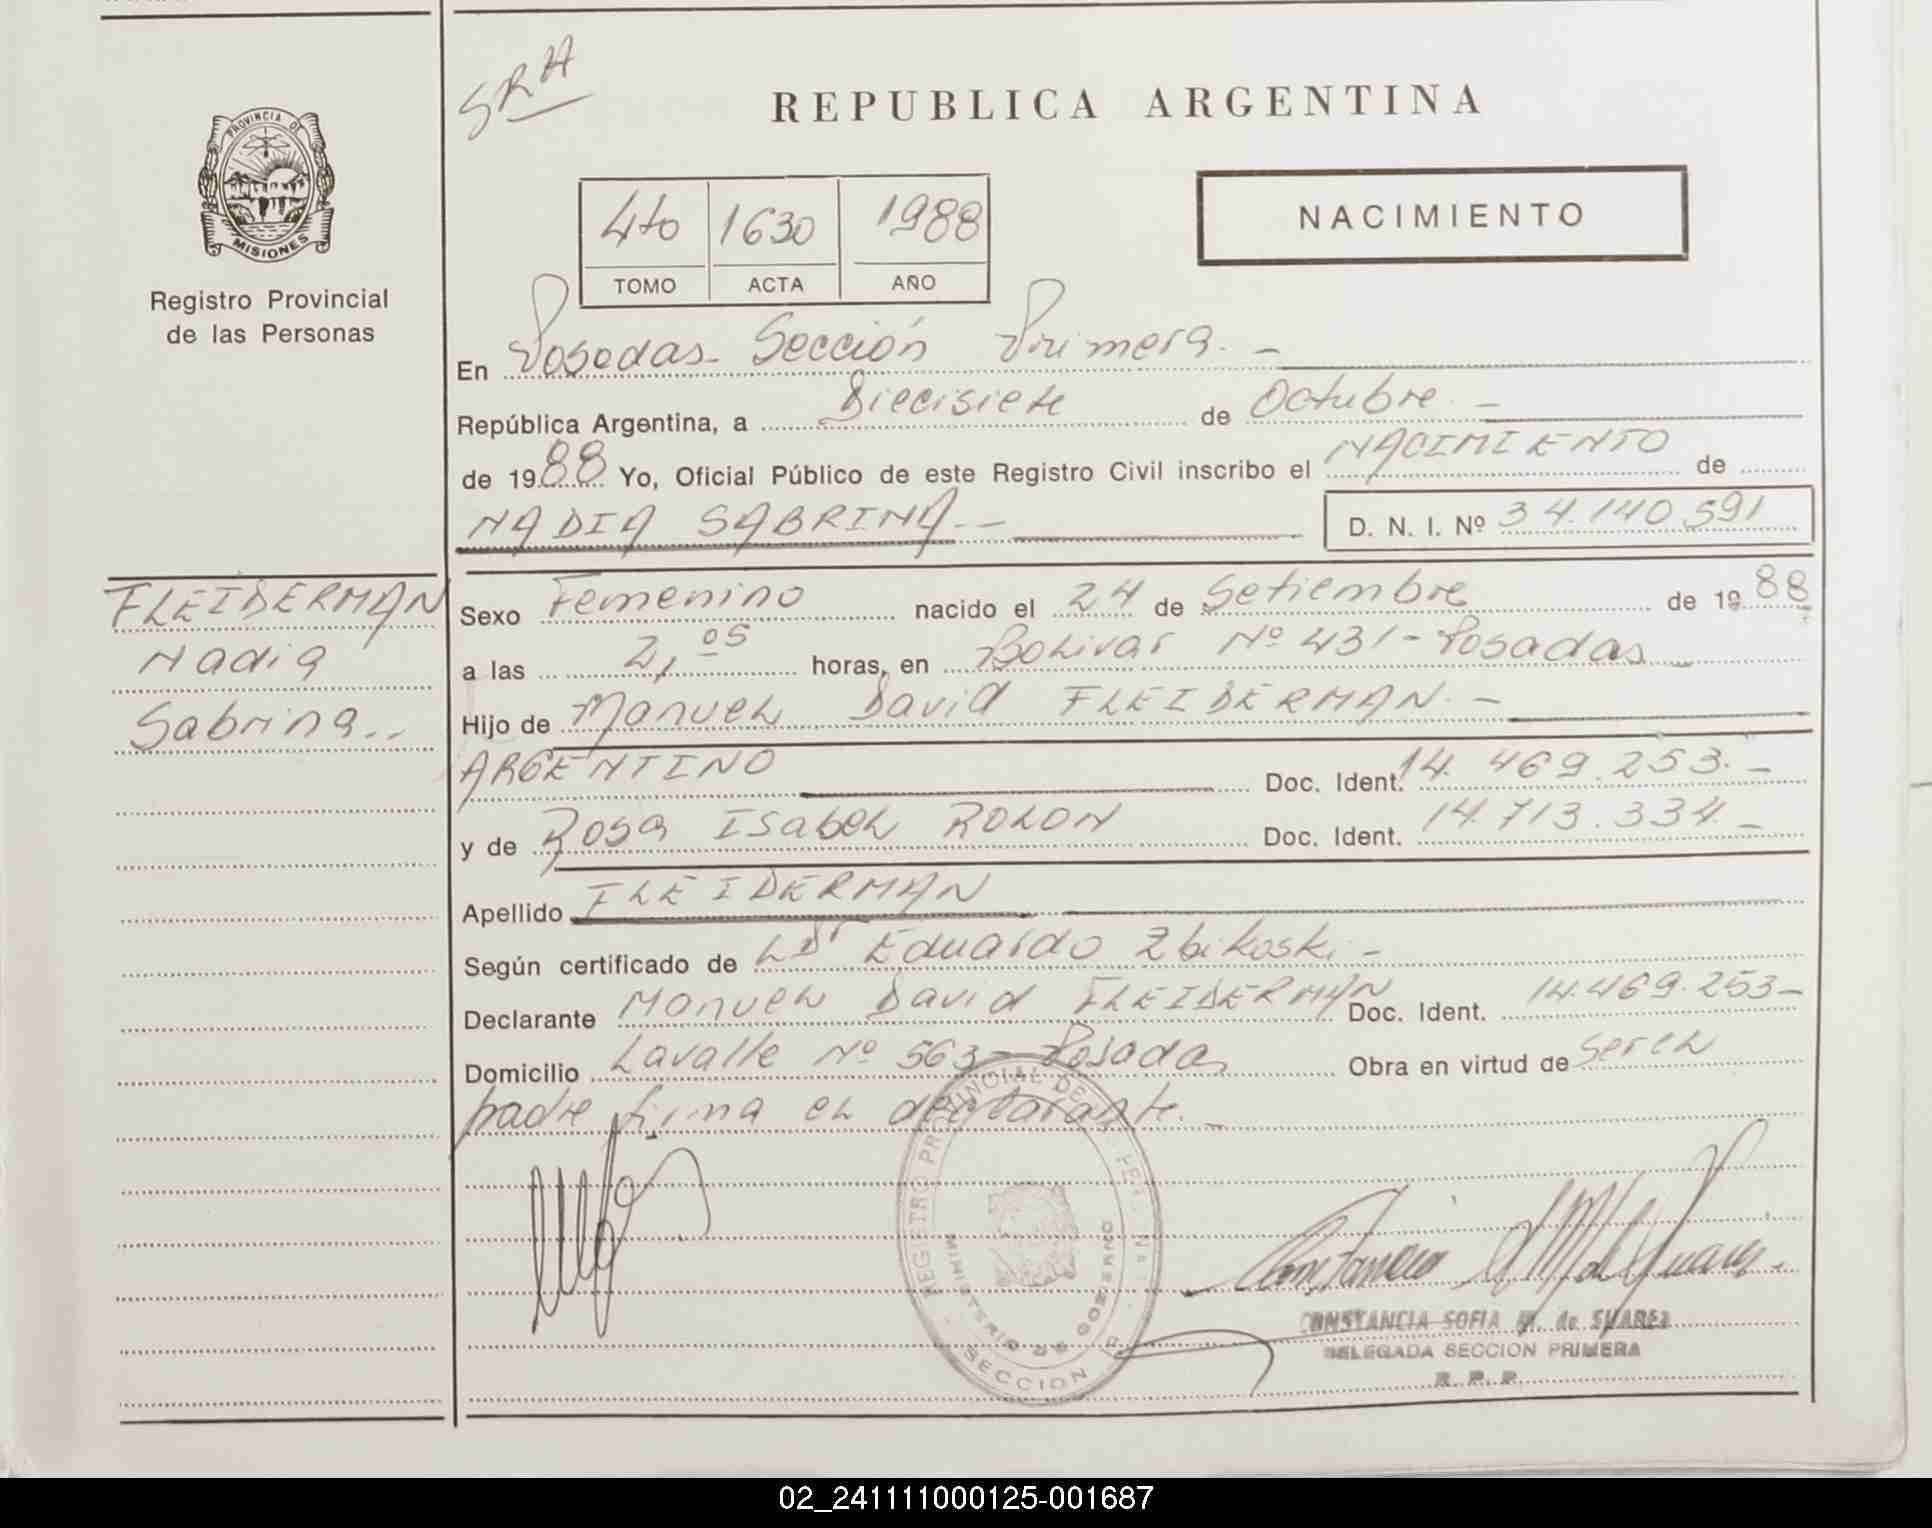 SRA
REPUBLICA ARGENTINA
PROVINCIA DE
MISIONES
Registro Provincial
de las Personas
4to 1630 1988
TOMO ACTA AÑO
NACIMIENTO
En Posadas Sección Primera. -
República Argentina, a Diecisiete de Octubre. -
de 1988 Yo, Oficial Público de este Registro Civil inscribo el NACIMIENTO de
NADIA SABRINA. -
D. N. I. Nº 34.140.591
FLEIDERMAN
Nadia
Sabrina..
Sexo Femenino nacido el 24 de Setiembre de 1988
a las 2,05 horas, en Bolivar Nº 431 - Posadas
Hijo de Manuel David FLEIDERMAN. -
ARGENTINO Doc. Ident. 14.469.253. -
y de Rosa Isabel ROLON Doc. Ident. 14.713.334. -
Apellido FLEIDERMAN
Según certificado de Dr Eduardo Zbikoski -
Declarante Manuel David FLEIDERMAN Doc. Ident. 14.469.253 -
Domicilio Lavalle Nº 563 - Posadas Obra en virtud de ser el
padre firma el declarante. -
REGISTRO PROVINCIAL DE
MINISTERIO DE GOBIERNO
SECCION
CONSTANCIA SOFIA M. de SUAREZ
DELEGADA SECCION PRIMERA
R. P. P.
02_241111000125-001687